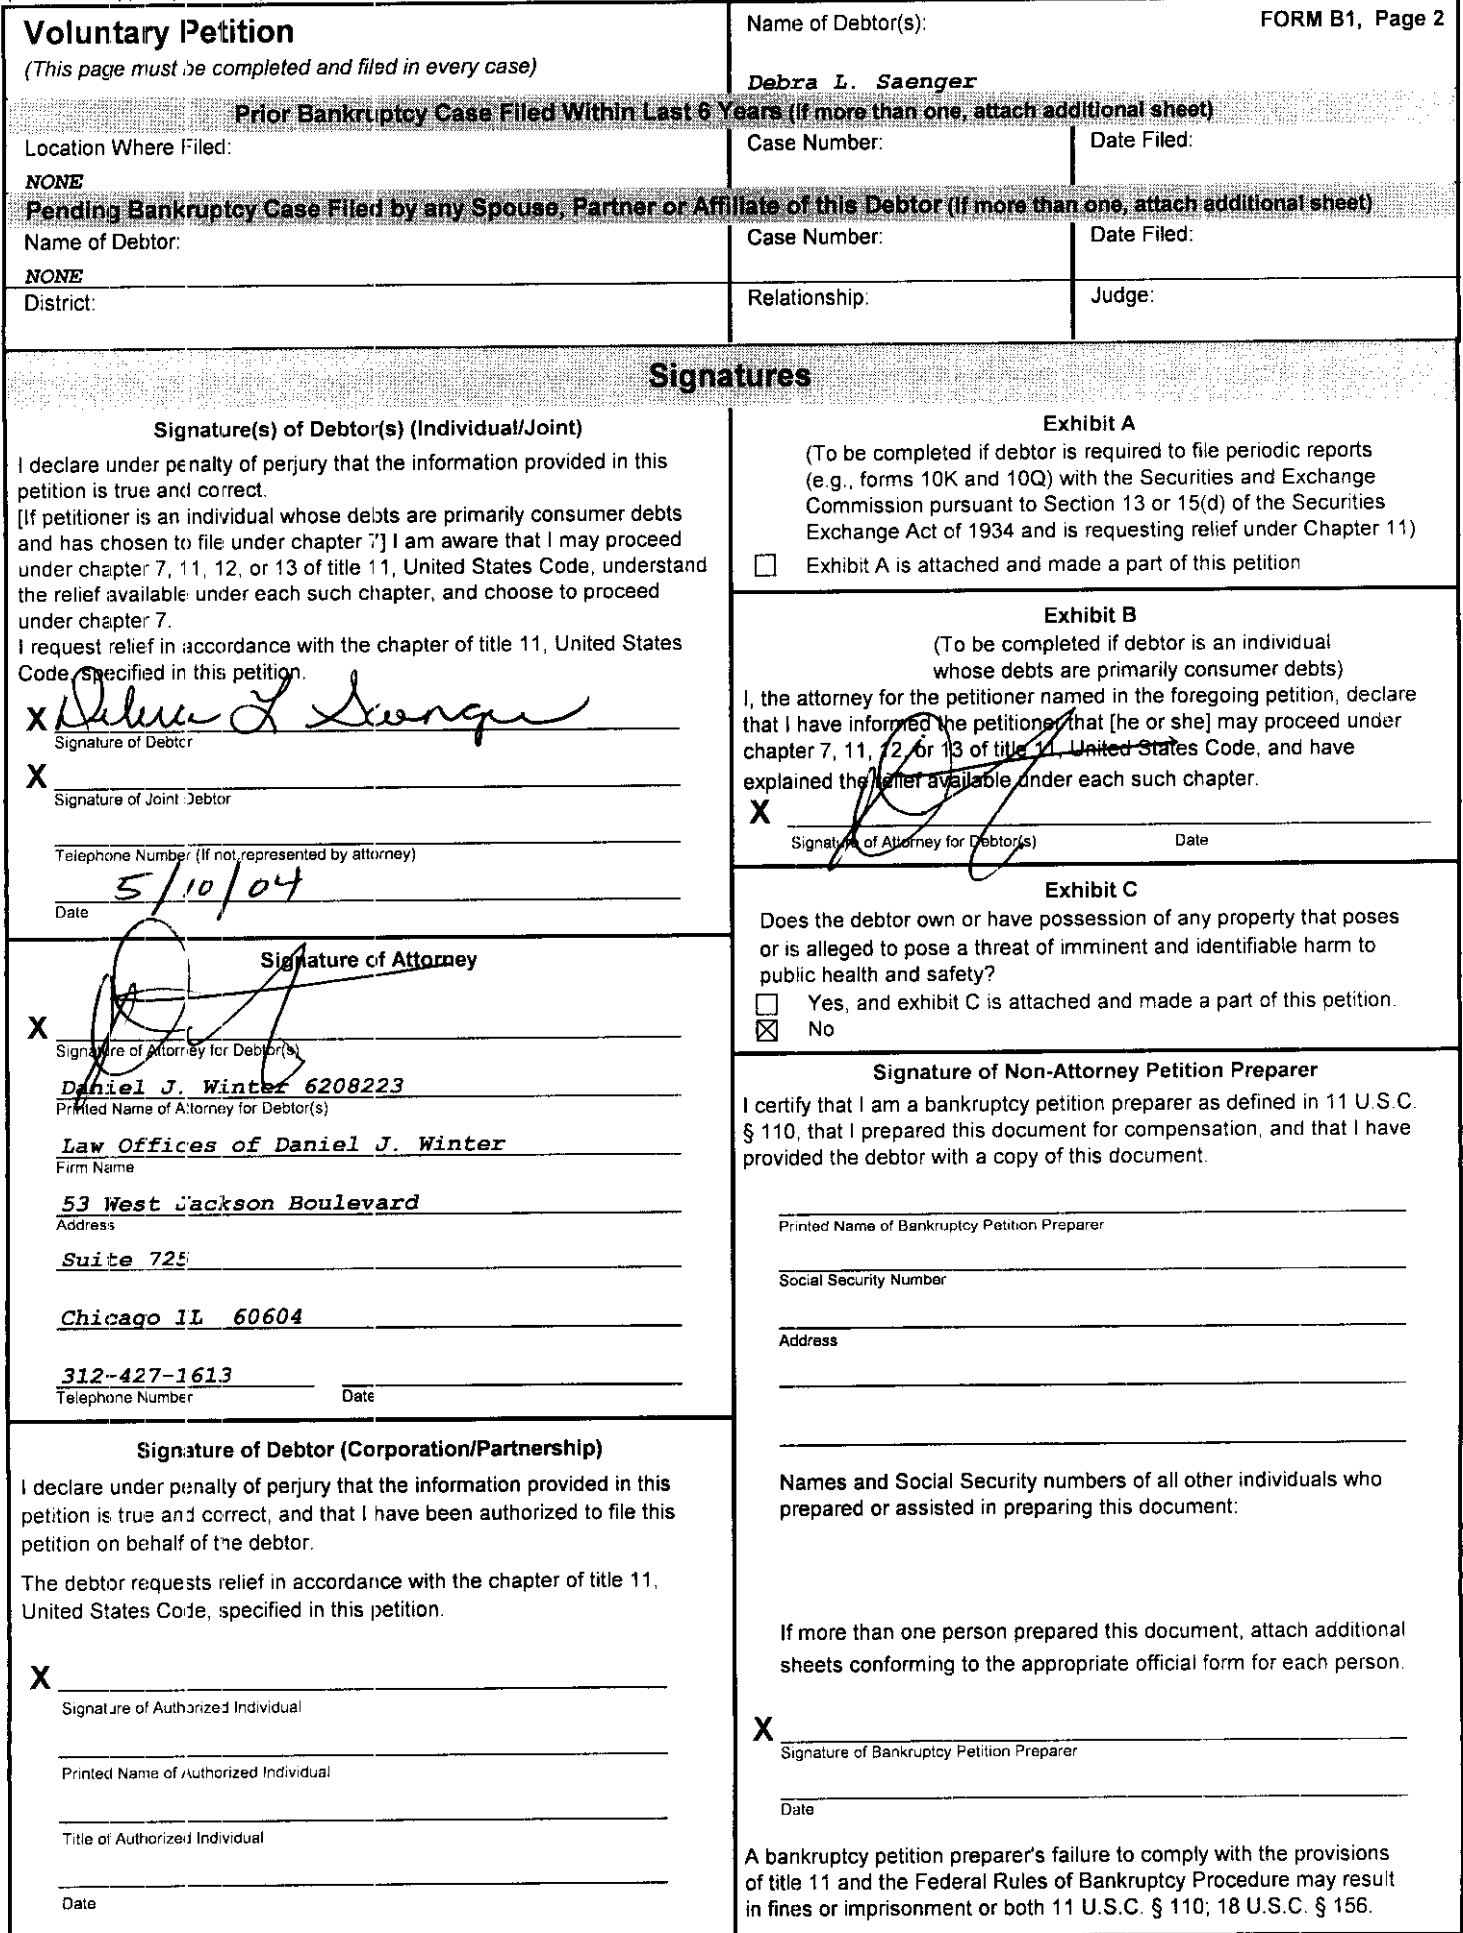 Voluntary Petition
(This page must be completed and filed in every case)
Name of Debtor(s):
FORM B1, Page 2
Debra L. Saenger
Prior Bankruptcy Case Filed Within Last 6 Years (If more than one, attach additional sheet)
Location Where Filed:
Case Number:
Date Filed:
NONE
Pending Bankruptcy Case Filed by any Spouse, Partner or Affiliate of this Debtor (If more than one, attach additional sheet)
Name of Debtor:
Case Number:
Date Filed:
NONE
District:
Relationship:
Judge:
Signatures
Signature(s) of Debtor(s) (Individual/Joint)
I declare under penalty of perjury that the information provided in this
petition is true and correct.
[If petitioner is an individual whose debts are primarily consumer debts
and has chosen to file under chapter 7] I am aware that I may proceed
under chapter 7, 11, 12, or 13 of title 11, United States Code, understand
the relief available under each such chapter, and choose to proceed
under chapter 7.
I request relief in accordance with the chapter of title 11, United States
Code, specified in this petition.
X Debra L Saenger
Signature of Debtor
X
Signature of Joint Debtor
Telephone Number (If not represented by attorney)
5/10/04
Date
Signature of Attorney
X
Signature of Attorney for Debtor(s)
Daniel J. Winter 6208223
Printed Name of Attorney for Debtor(s)
Law Offices of Daniel J. Winter
Firm Name
53 West Jackson Boulevard
Address
Suite 725
Chicago IL 60604
312-427-1613
Telephone Number
Date
Signature of Debtor (Corporation/Partnership)
I declare under penalty of perjury that the information provided in this
petition is true and correct, and that I have been authorized to file this
petition on behalf of the debtor.
The debtor requests relief in accordance with the chapter of title 11,
United States Code, specified in this petition.
X
Signature of Authorized Individual
Printed Name of Authorized Individual
Title of Authorized Individual
Date
Exhibit A
(To be completed if debtor is required to file periodic reports
(e.g., forms 10K and 10Q) with the Securities and Exchange
Commission pursuant to Section 13 or 15(d) of the Securities
Exchange Act of 1934 and is requesting relief under Chapter 11)
☐ Exhibit A is attached and made a part of this petition
Exhibit B
(To be completed if debtor is an individual
whose debts are primarily consumer debts)
I, the attorney for the petitioner named in the foregoing petition, declare
that I have informed the petitioner that [he or she] may proceed under
chapter 7, 11, 12, or 13 of title 11, United States Code, and have
explained the relief available under each such chapter.
X
Signature of Attorney for Debtor(s)
Date
Exhibit C
Does the debtor own or have possession of any property that poses
or is alleged to pose a threat of imminent and identifiable harm to
public health and safety?
☐ Yes, and exhibit C is attached and made a part of this petition.
☒ No
Signature of Non-Attorney Petition Preparer
I certify that I am a bankruptcy petition preparer as defined in 11 U.S.C.
§ 110, that I prepared this document for compensation, and that I have
provided the debtor with a copy of this document.
Printed Name of Bankruptcy Petition Preparer
Social Security Number
Address
Names and Social Security numbers of all other individuals who
prepared or assisted in preparing this document:
If more than one person prepared this document, attach additional
sheets conforming to the appropriate official form for each person.
X
Signature of Bankruptcy Petition Preparer
Date
A bankruptcy petition preparer's failure to comply with the provisions
of title 11 and the Federal Rules of Bankruptcy Procedure may result
in fines or imprisonment or both 11 U.S.C. § 110; 18 U.S.C. § 156.